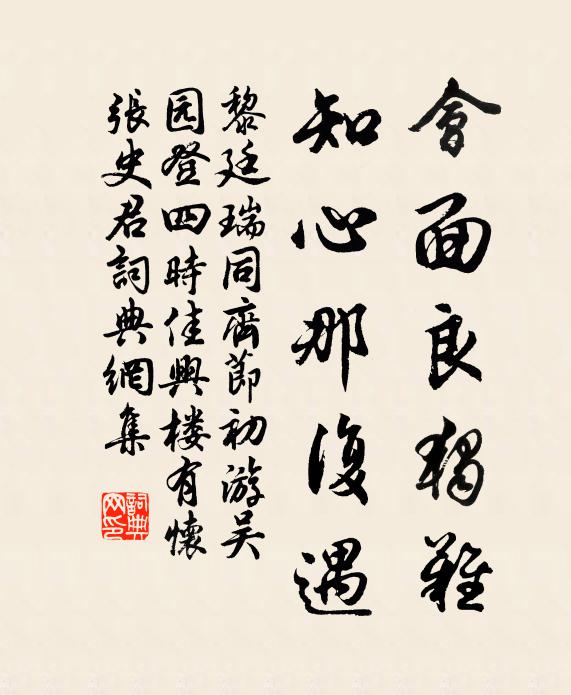 會面良獨難
知心那復遇
黎廷瑞同齊節初游吴
园登四時佳興楼有懷
張史君詞典網集
詞典
网印